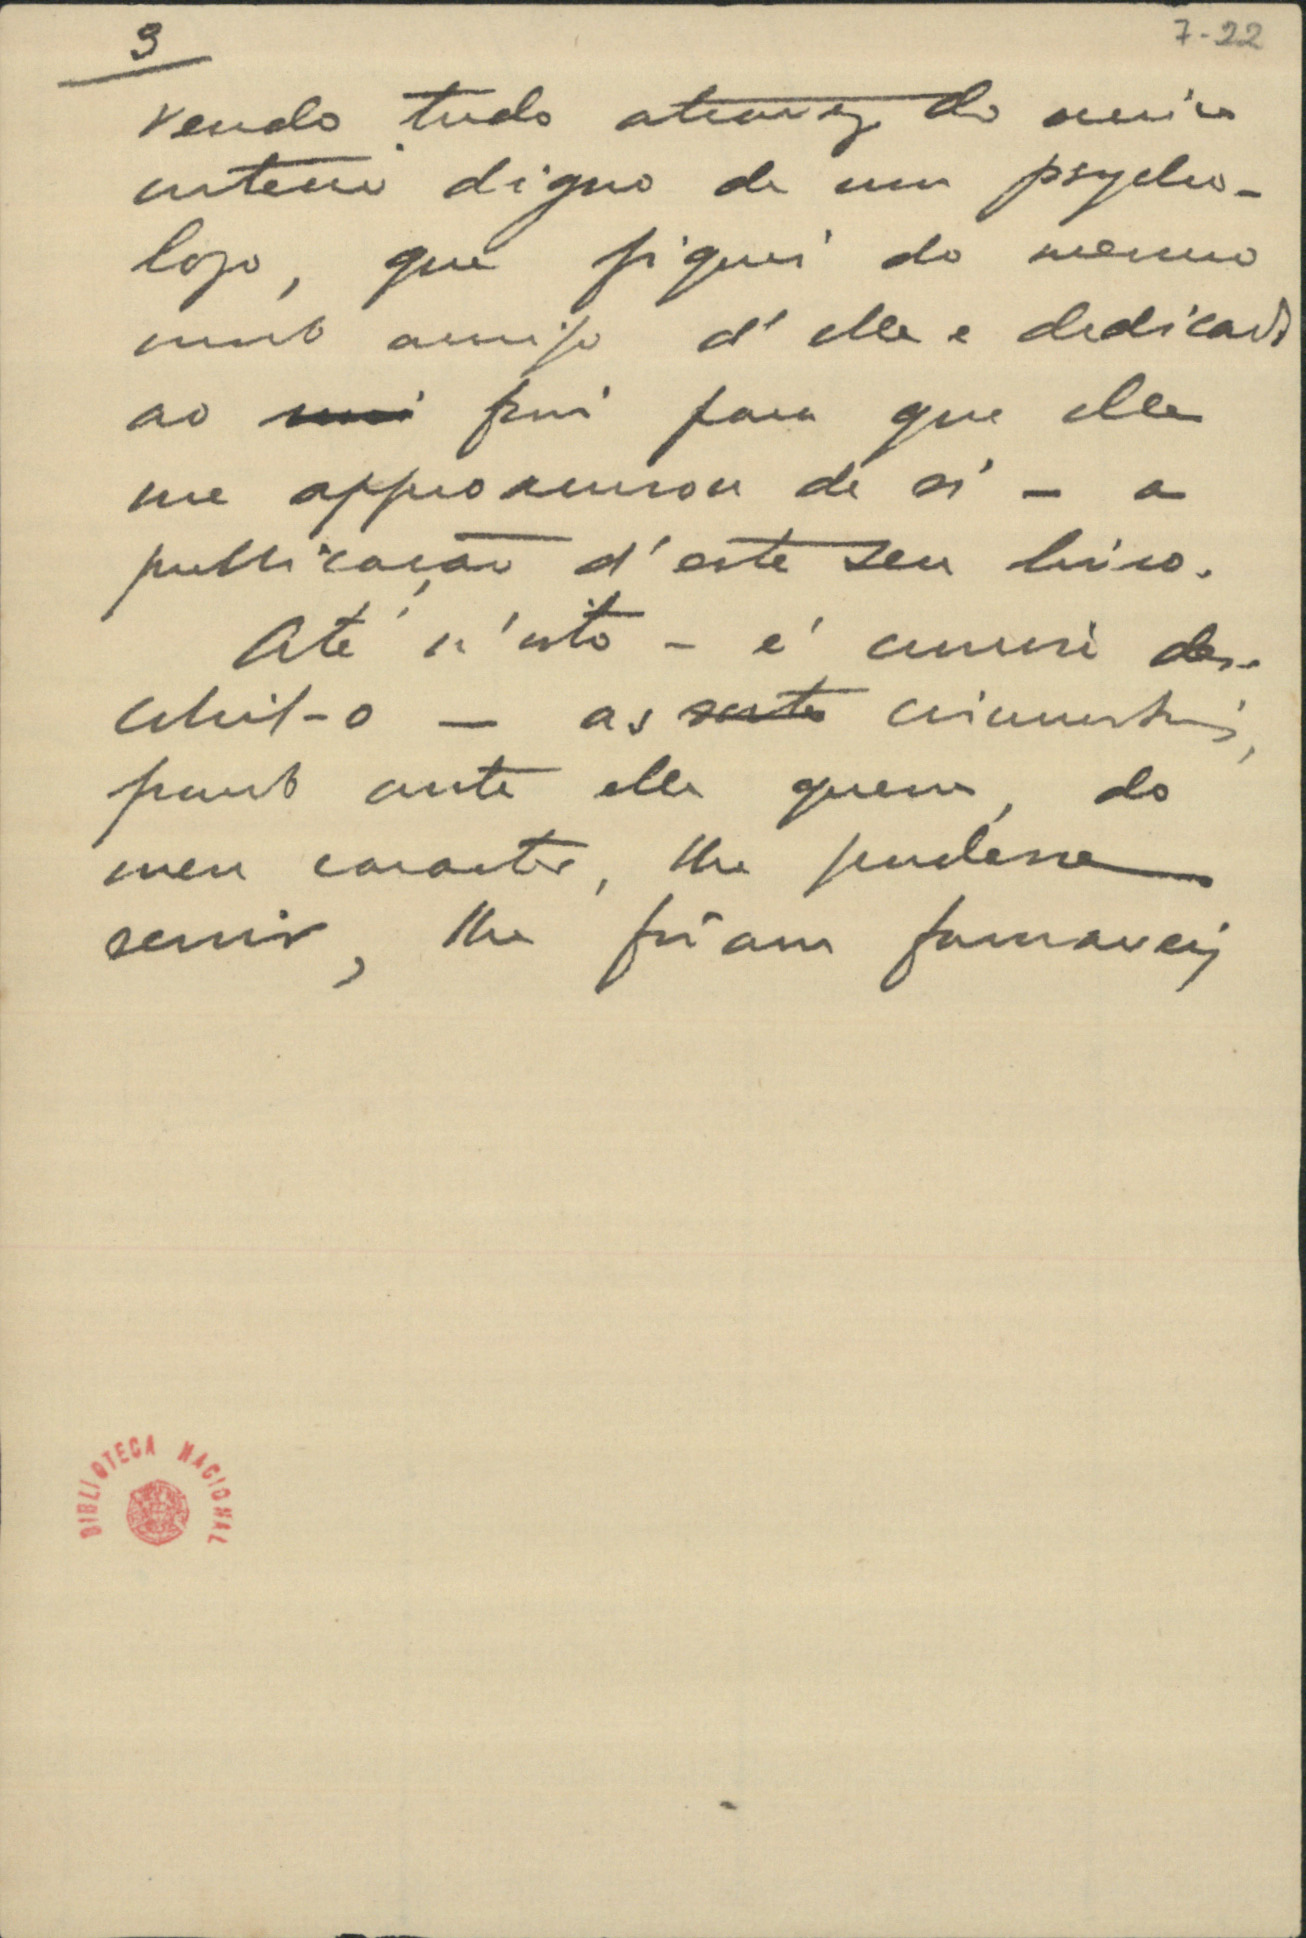 3
7-22
vendo tudo atravez do unico
criterio digno de um psycho-
logo, que fiquei do mesmo
modo amigo d'elle e dedicado
ao fim para que elle
me approximou de si — a
publicação d'este seu livro.
Até n'isto — é curioso des-
cobril-o — as circumstancias,
pondo ante elle quem, do
meu caracter, lhe pudesse
servir, lhe fôram favoraveis
BIBLIOTECA NACIONAL